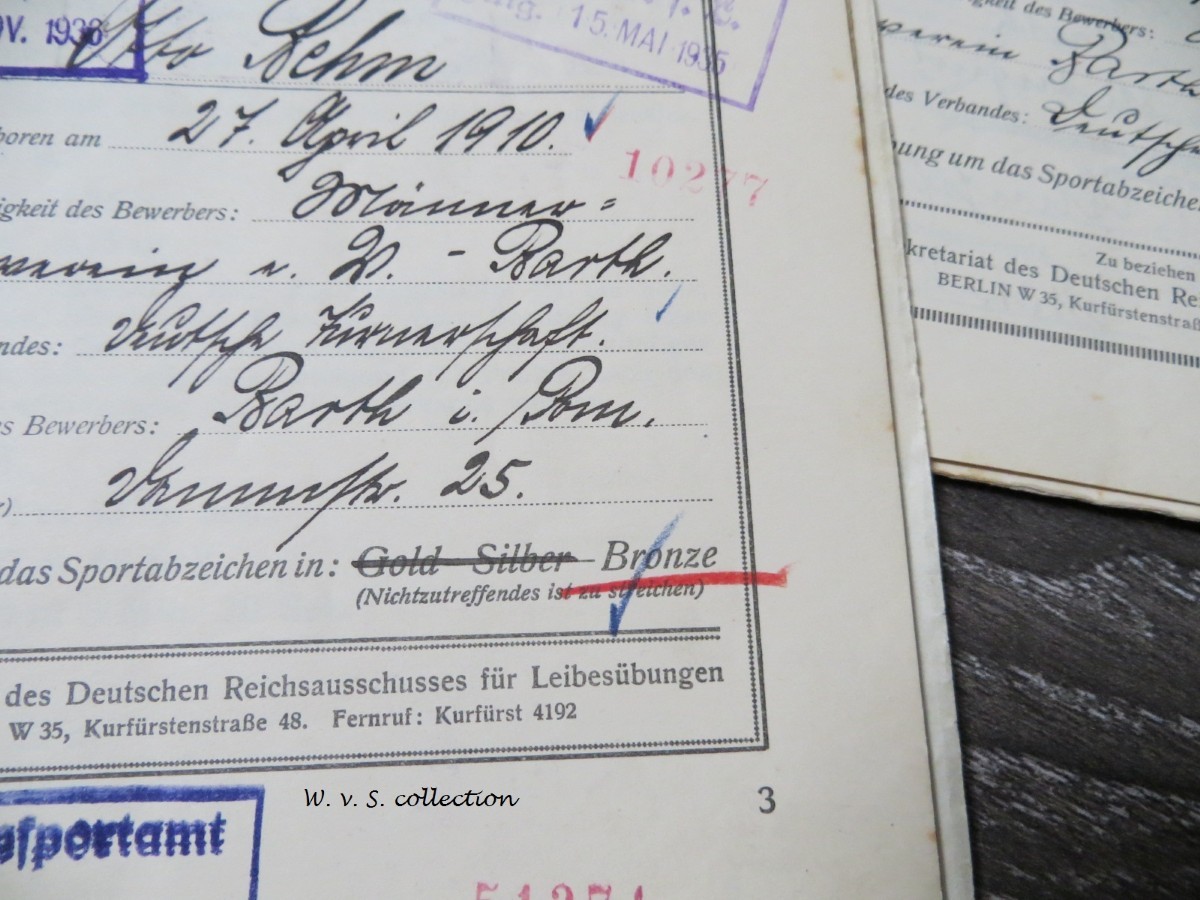 OV. 1936
15. MAI 1935
Otto Rehm
boren am 27. April 1910.
10277
igkeit des Bewerbers: Männer=
verein e. V. - Barth.
ndes: Deutsche Turnerschaft.
s Bewerbers: Barth i./Pom.
25.
das Sportabzeichen in: Gold Silber Bronze
(Nichtzutreffendes ist zu streichen)
des Deutschen Reichsausschusses für Leibesübungen
W 35, Kurfürstenstraße 48. Fernruf: Kurfürst 4192
W. v. S. collection
3
sportamt
51271
igkeit des Bewerbers:
verein Barth
des Verbandes: Deutsche
bung um das Sportabzeichen
Zu beziehen
kretariat des Deutschen Rei
BERLIN W 35, Kurfürstenstraß